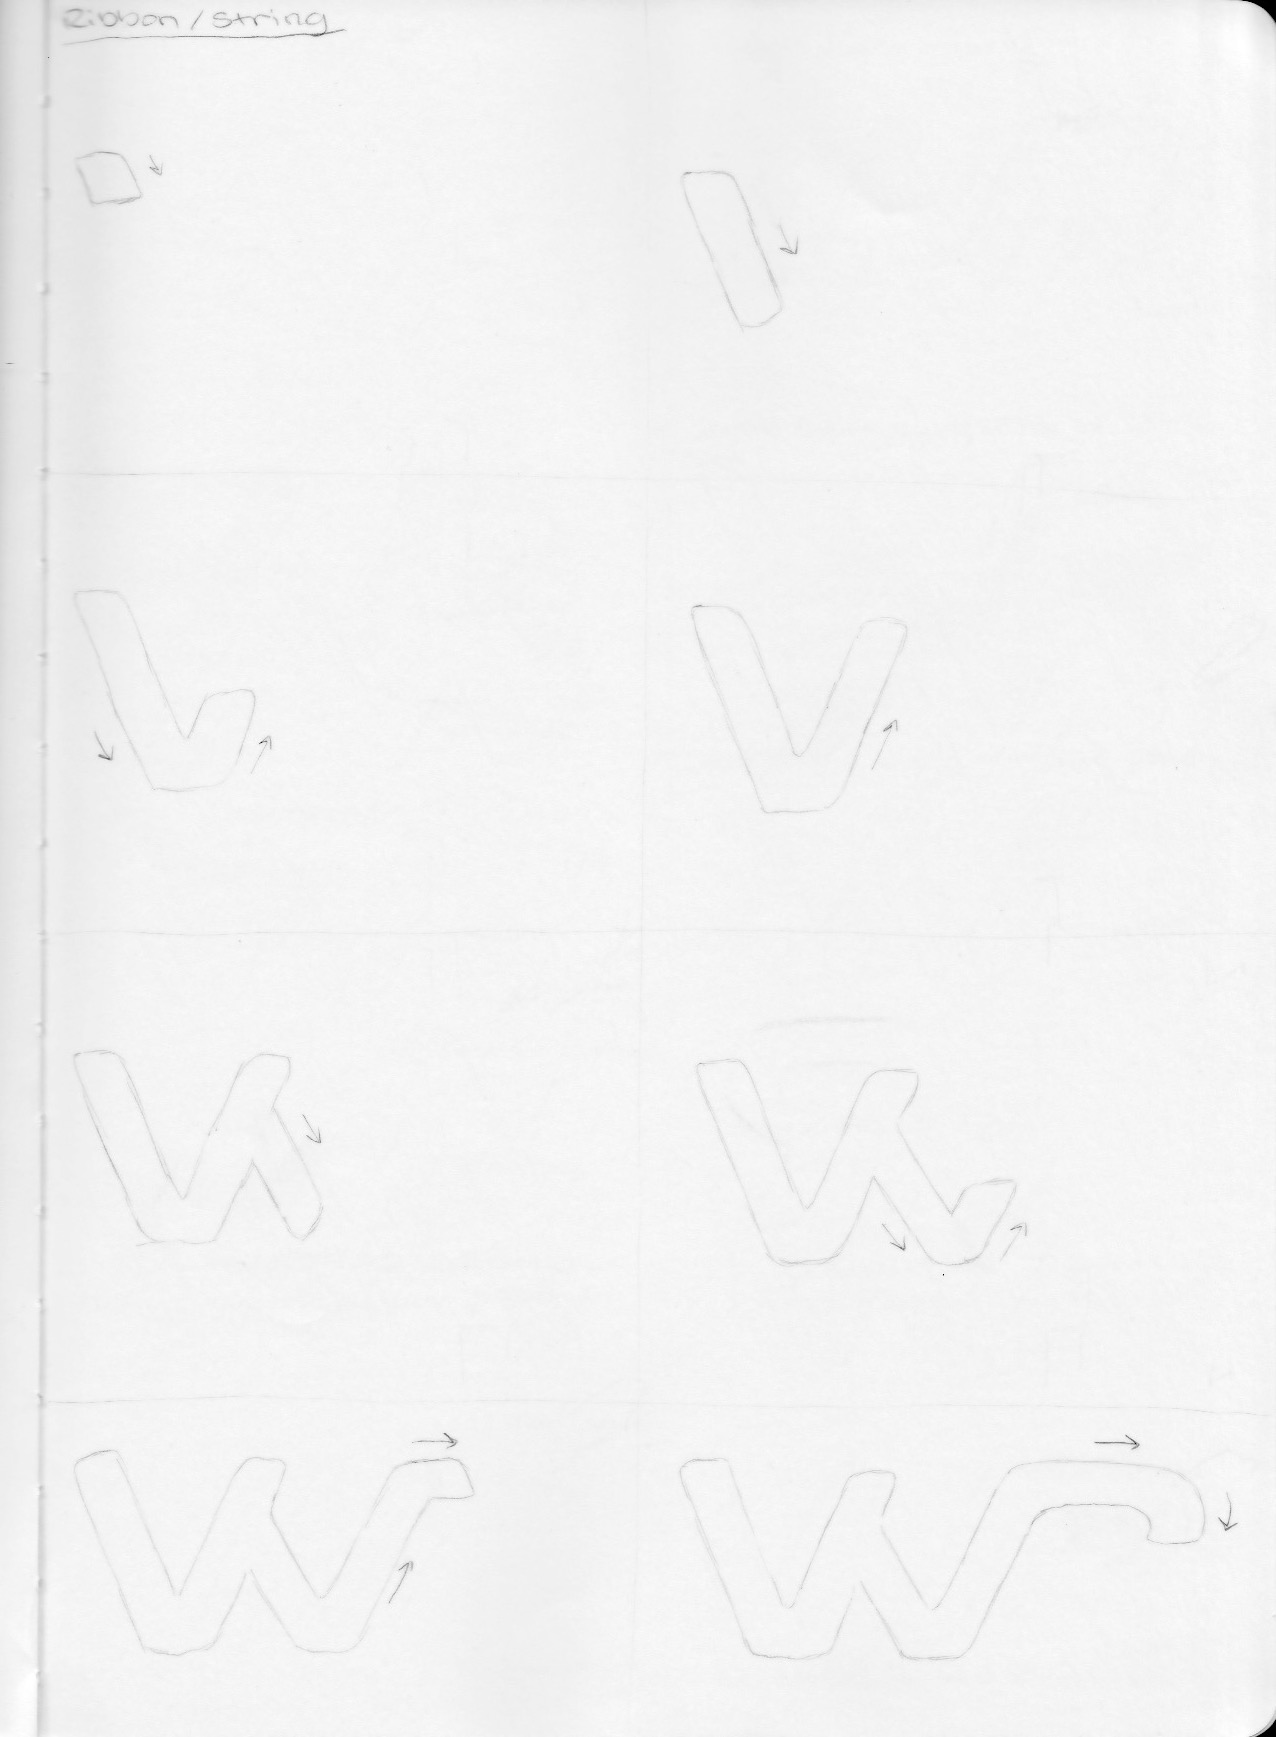 Ribbon / String
W
W